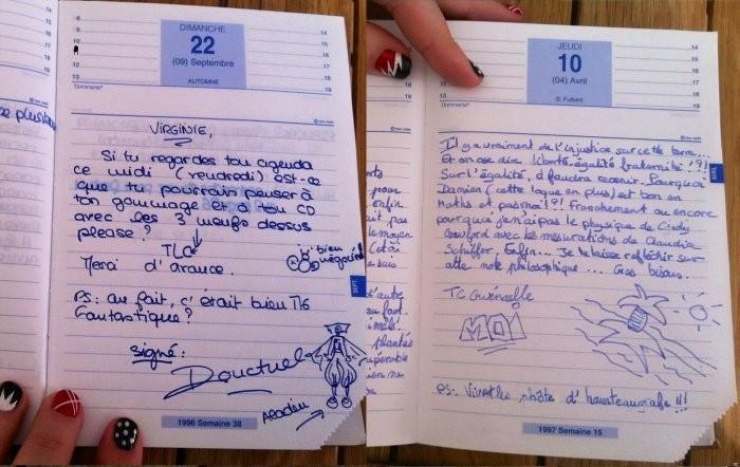 DIMANCHE
22
(09) Septembre
AUTOMNE
Dominante
VIRGINIE,
Si tu regardes ton agenda
ce midi (vendredi) est-ce
que tu pourrais penser à
ton gommage et à ton CD
avec les 3 meufs dessus
please?
TLC
Merci d'avance.
bien
négocié
PS: au fait, c'était bien
Fantastique?
signé:
Douctuel
Aladin
SEPT
1996 Semaine 38
JEUDI
10
(04) Avril
S. Fulbert
Dominante
Il y a vraiment de l'injustice sur cette terre...
Et on ose dire liberté, égalité fraternité!?!
Sur l'égalité, il faudra revenir. Pourquoi
Damien (cette laque en plus) est bon en
Maths et pas moi?! Franchement ou encore
pourquoi je n'ai pas le physique de Cindy
Crawford avec les mesurations de Claudia
Schiffer. Enfin... Je te laisse réfléchir sur
cette note philosophique... Gros bisous.
TC Gwénaelle
MOI
PS: Vive les
1997 Semaine 15